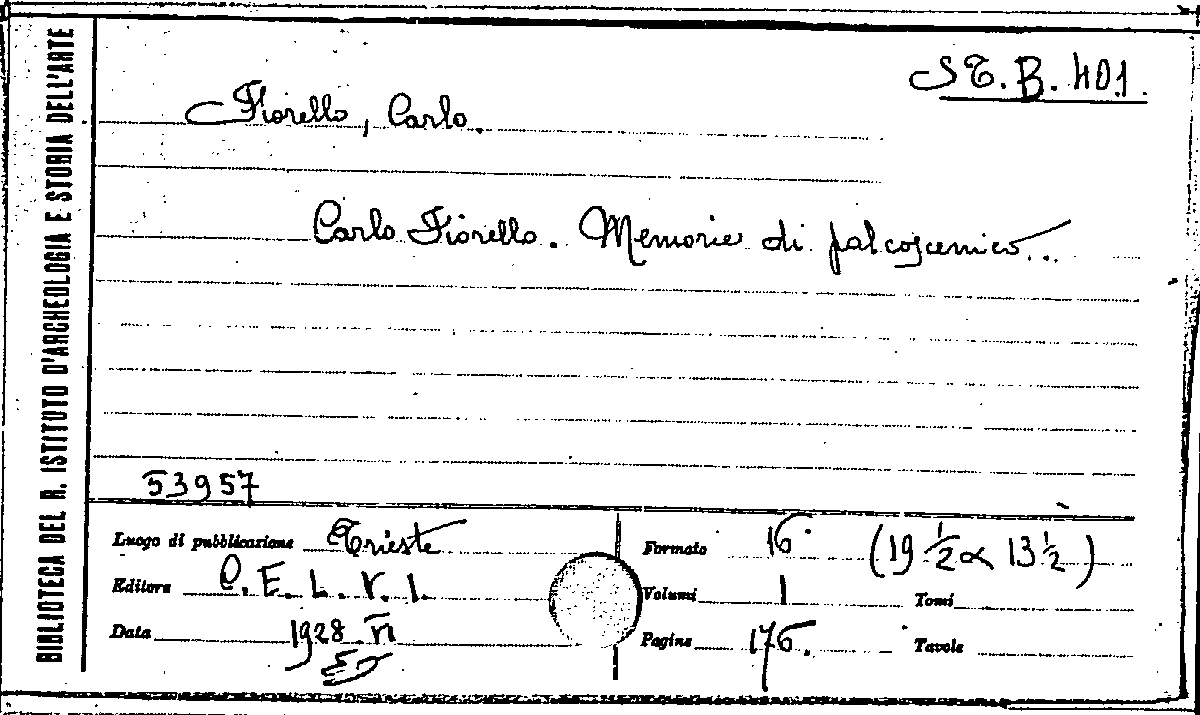 BIBLIOTECA DEL R. ISTITUTO D'ARCHEOLOGIA E STORIA DELL'ARTE
ST.B.401.
Fiorello, Carlo.
Carlo Fiorello. Memorie di palcoscenico...
53957
Luogo di pubblicazione Trieste
Editore C.E.L.V.I.
Data 1928 VI
Formato 16° (19 ½ x 13 ½)
Volumi 1 Tomi
Pagine 176. Tavole